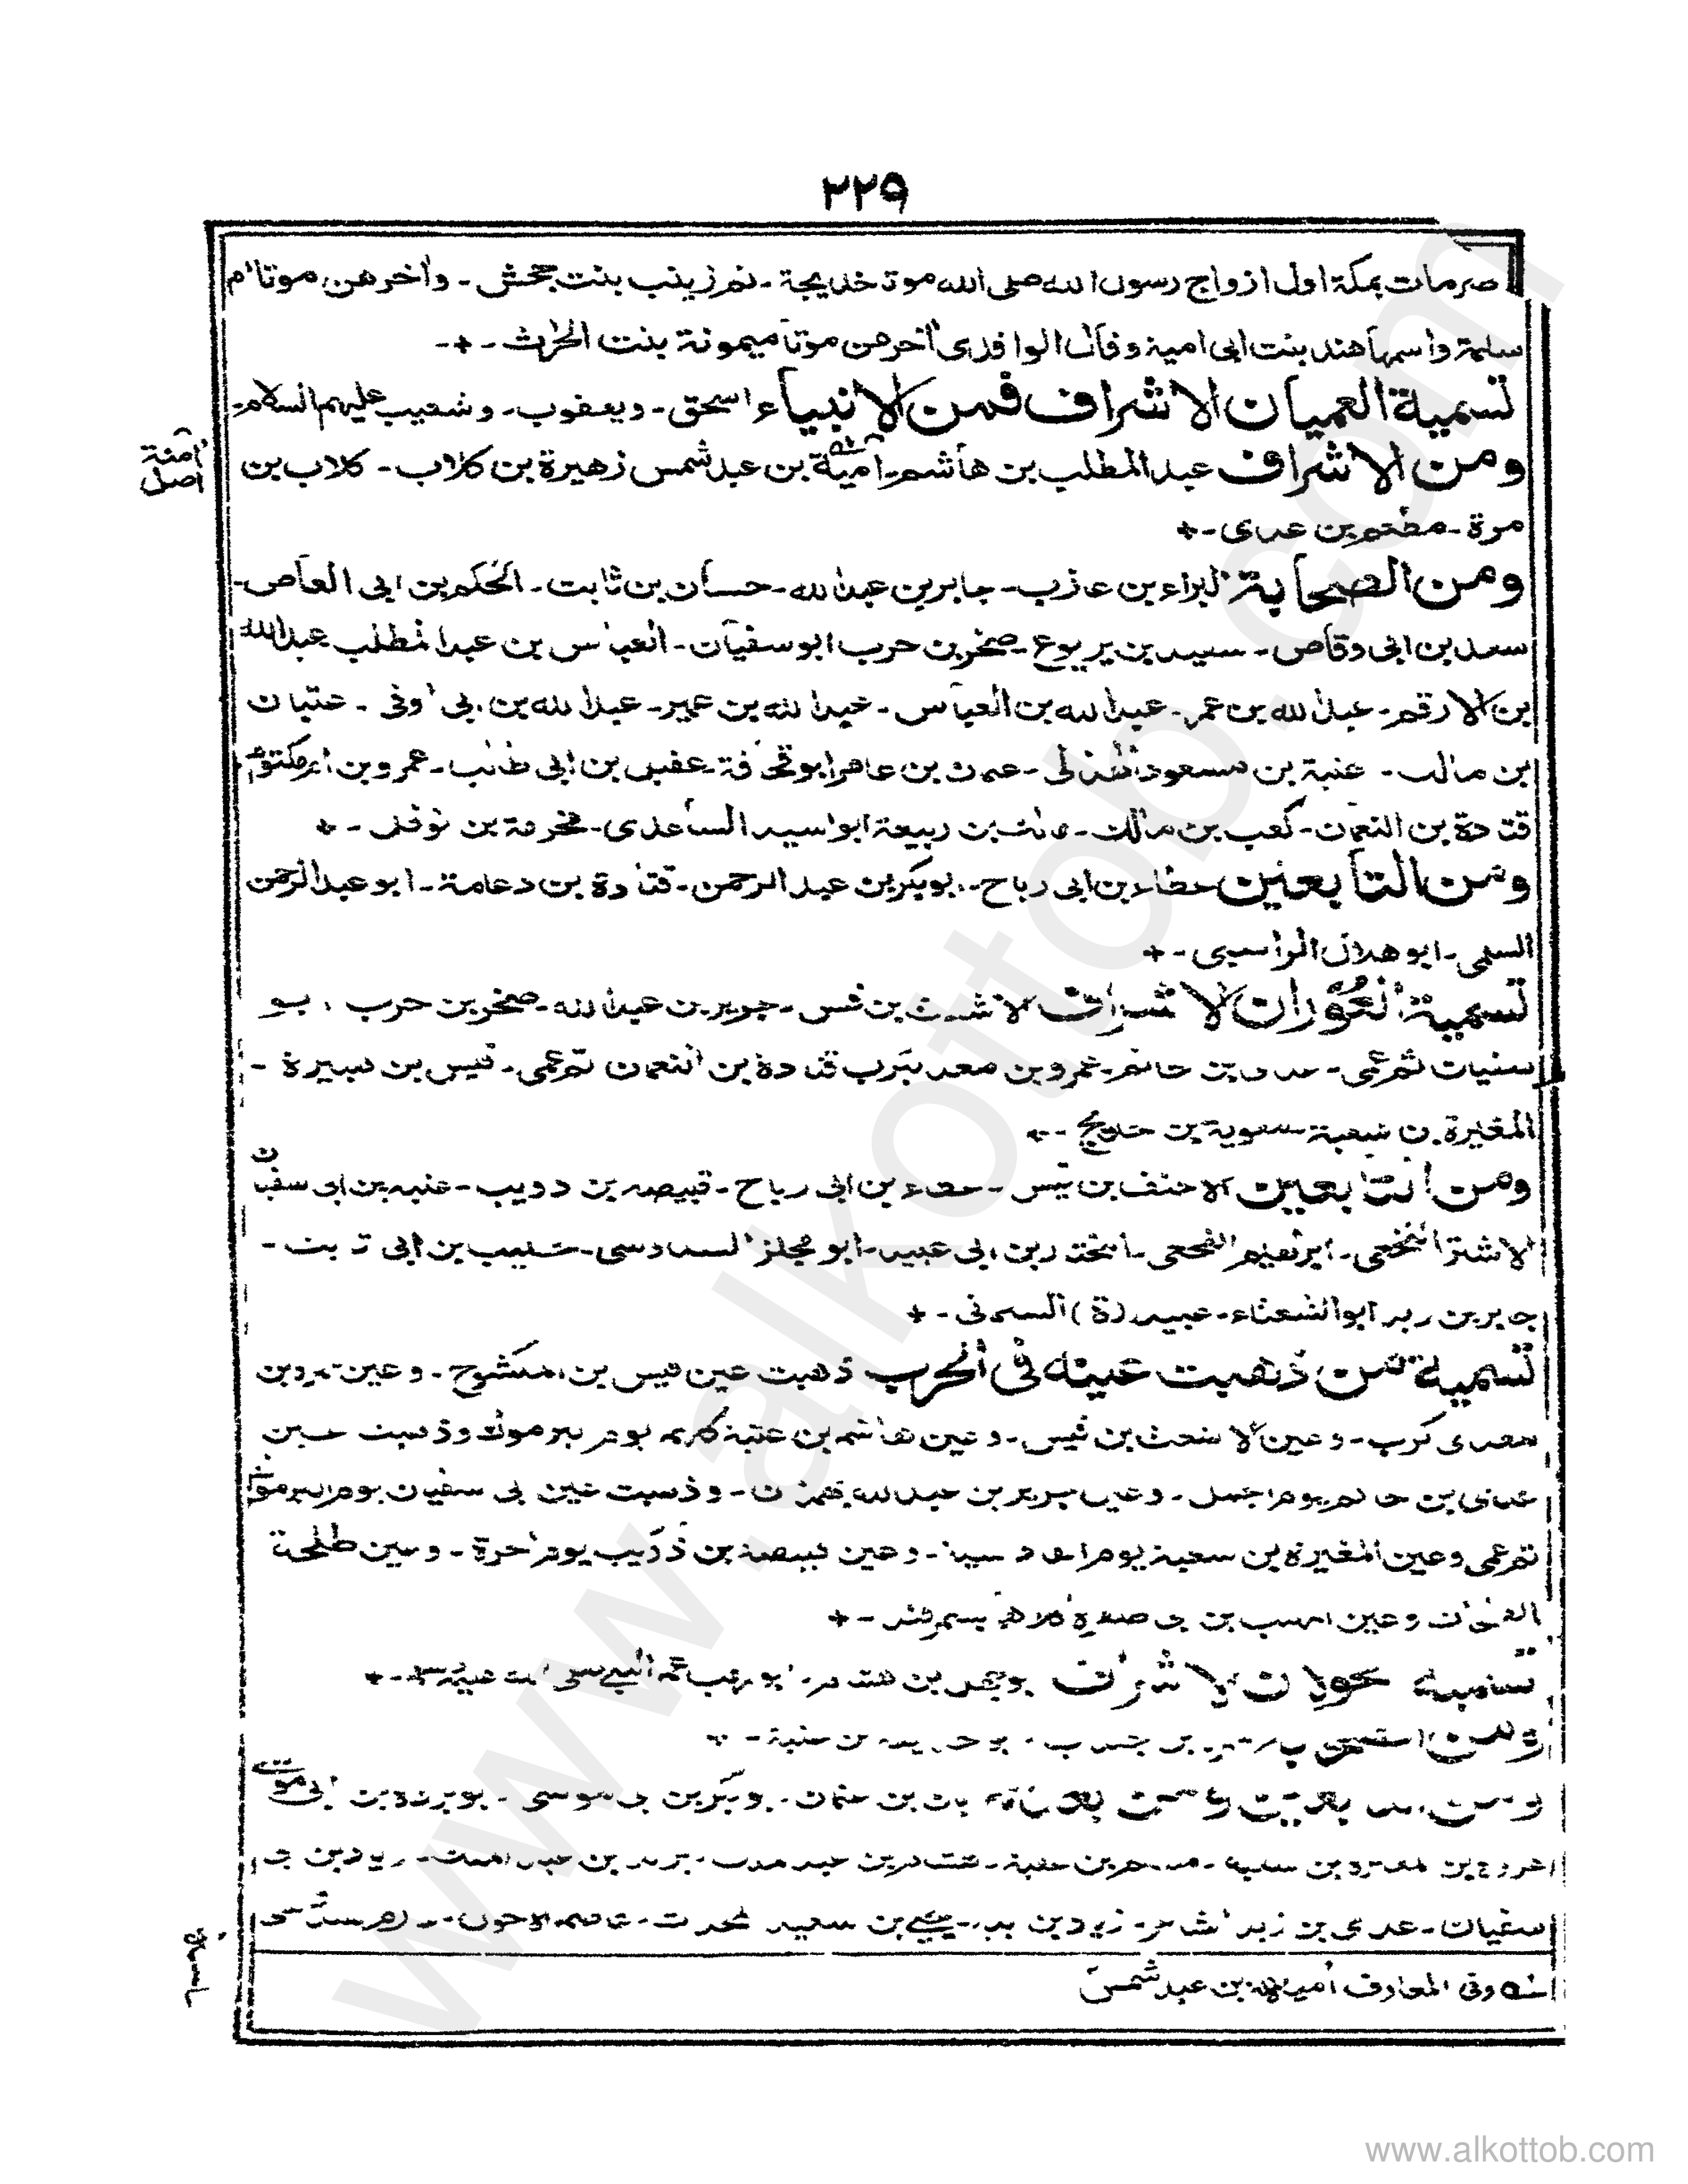 ٢٢٩
صرمات بمكة اول ازواج رسول الله صلى الله موتا خديجة - ثم زينب بنت جحش - وآخرهن موتا ام
سلمة واسمها هند بنت ابى امية وقال الواقدى آخرهن موتا ميمونة بنت الحرث - + -
تسمية العميان الاشراف فمن الانبياء اسحق - ويعقوب - وشعيب عليهم السلام -
ومن الاشراف عبد المطلب بن هاشم - امية بن عبد شمس زهيرة بن كلاب - كلاب بن
آمنة
اصل
مرة - مطعم بن عدى - +
ومن الصحابة البراء بن عازب - جابر بن عبد الله - حسان بن ثابت - الحكم بن ابى العاص -
سعد بن ابى وقاص - سعيد بن يربوع - صخر بن حرب ابو سفيان - العباس بن عبد المطلب عبد الله
بن الارقم - عبد الله بن عمر - عبد الله بن العباس - عبد الله بن عمير - عبد الله بن ابى اوفى - عتبان
بن مالك - عتبة بن مسعود الهذلى - عثمان بن عامر ابو قحافة - عقيل بن ابى طالب - عمرو بن ام مكتوم
قتادة بن النعمان - كعب بن مالك - مالك بن ربيعة ابو اسيد الساعدى - مخرمة بن نوفل - +
ومن التابعين عطاء بن ابى رباح - ابو بكر بن عبد الرحمن - قتادة بن دعامة - ابو عبد الرحمن
السلمى - ابو هلال الراسبى - +
تسمية العوران الاشراف الاشعث بن قيس - جرير بن عبد الله - صخر بن حرب ابو
سفيان ثم عمى - عدى بن حاتم - عمرو بن معد يكرب قتادة بن النعمان ثم عمى - قيس بن هبيرة -
المغيرة بن شعبة معوية بن حديج - +
ومن التابعين الاحنف بن قيس - عطاء بن ابى رباح - قبيصة بن ذويب - عتبة بن ابى سفيان
الاشتر النخعى - ابرهيم النخعى - المختار بن ابى عبيد - ابو مجلز السدوسى - حبيب بن ابى ثابت -
جابر بن زيد ابو الشعثاء - عبيد (ة) السلمانى - +
تسمية من ذهبت عينه فى الحرب ذهبت عين قيس بن المكشوح - وعين عمرو بن
معدى كرب - وعين الاشعث بن قيس - وعين هاشم بن عتبة كلهم يوم اليرموك وذهبت عين
عدى بن حاتم يوم الجمل - وعين جرير بن عبد الله بهمدان - وذهبت عين ابى سفيان يوم اليرموك
ثم عمى وعين المغيرة بن شعبة يوم القادسية - وعين قبيصة بن ذويب يوم الحرة - وعين طلحة
الطلحات وعين المهلب بن ابى صفرة كلاهما بسمرقند - +
تسمية حولان الاشراف ابو جهل بن هشام - ابو لهب عم النبى صلى الله عليه وسلم - +
ومن
ومن ابان بن عثمان - ابو بكر بن ابى موسى - ابو بردة بن ابى موسى
عروة بن المغيرة بن شعبة - مسلم بن عقبة - هشام بن عبد الملك - يزيد بن عبد الملك - زياد بن ابى
سفيان - عدى بن زيد الشاعر - زياد بن - يحيى بن سعيد المحدث - عاصم الاحول -
وفى المعارف امية بن عبد شمس